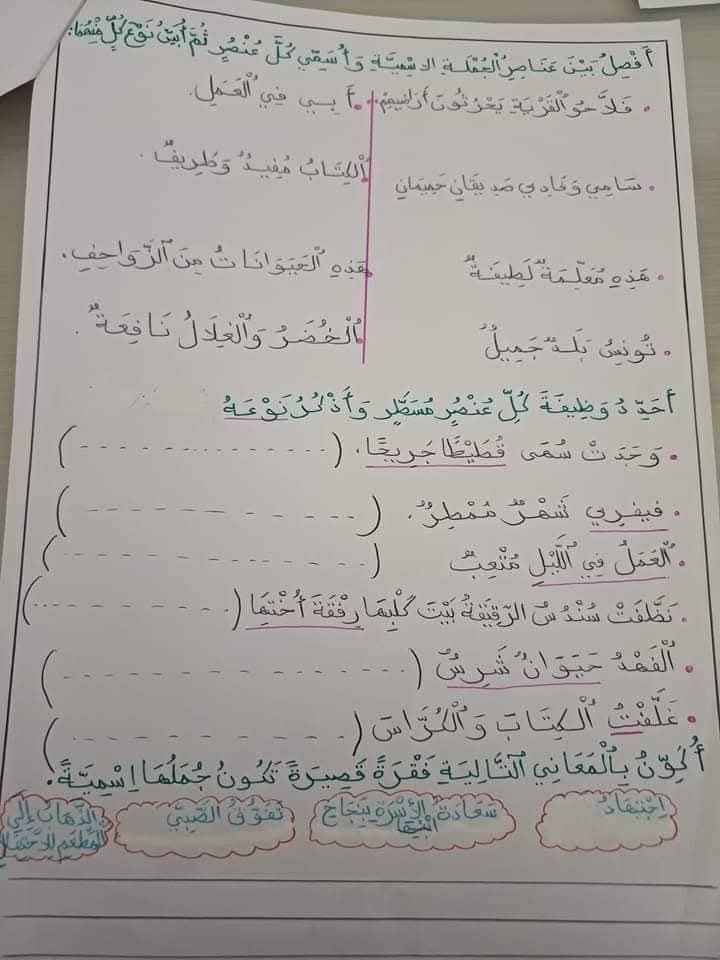 أَفْصِلُ بَيْنَ عَنَاصِرِ الْجُمْلَةِ الاِسْمِيَّةِ وَأُسَمِّي كُلَّ عُنْصُرٍ ثُمَّ أُبَيِّنُ نَوْعَ كُلٍّ مِنْهَا:
• فَلاَّحُو الْقَرْيَةِ يَحْرُثُونَ أَرَاضِيهِمْ. • أَبِي فِي الْعَمَلِ.
• سَامِي وَفَادِي صَدِيقَانِ حَمِيمَانِ • الْكِتَابُ مُفِيدٌ وَطَرِيفٌ.
• هَذِهِ مُعَلِّمَةٌ لَطِيفَةٌ • هَذِهِ الْحَيَوَانَاتُ مِنَ الزَّوَاحِفِ.
• تُونِسُ بَلَدٌ جَمِيلٌ • الْخُضَرُ وَالْغِلَالُ نَافِعَةٌ.
أُحَدِّدُ وَظِيفَةَ كُلِّ عُنْصُرٍ مُسَطَّرٍ وَأَذْكُرُ نَوْعَهُ
• وَجَدَتْ سُمَى قُطَيْطًا جَرِيحًا. (- - - - - - - - - - - -)
• فِيفْرِي شَهْرٌ مُمْطِرٌ. (- - - - - - - - - -)
• الْعَمَلُ فِي اللَّيْلِ مُتْعِبٌ (- - - - - - - - - - -)
• نَظَّفَتْ سُنْدُسُ الرَّقِيقَةُ بَيْتَ كَلْبِهَا رِفْقَةَ أُخْتِهَا (- - - - - - - -)
• الْفَهْدُ حَيَوَانٌ شَرِسٌ (- - - - - - - - - - - -)
• غَلَّفْتُ الْكِتَابَ وَالْكُرَّاسَ (- - - - - - - - - -)
أُكَوِّنُ بِالْمَعَانِي التَّالِيَةِ فَقْرَةً قَصِيرَةً تَكُونُ جُمَلُهَا اِسْمِيَّةً.
اِجْتِهَادُ
سَعَادَةُ الأُسْرَةِ بِنَجَاحِ
ابْنِهَا
تَفَوُّقُ الصَّبِيِّ
الذَّهَابُ إِلَى
الْمَطْعَمِ لِلاِحْتِفَالِ